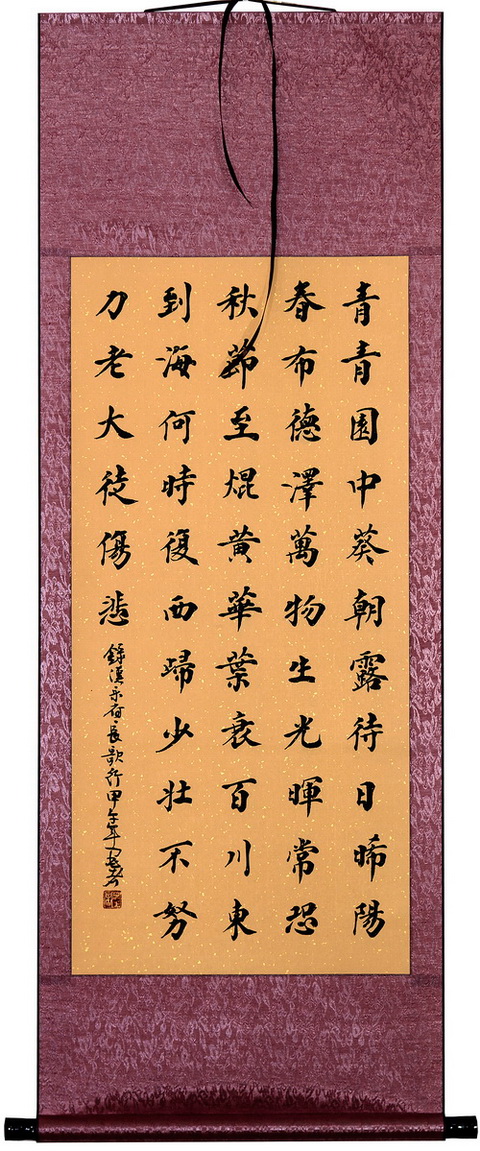 青青園中葵朝露待日晞陽
春布德澤萬物生光暉常恐
秋節至焜黄華葉衰百川東
到海何時復西歸少壯不努
力老大徒傷悲
錄漢乐府長歌行甲午年